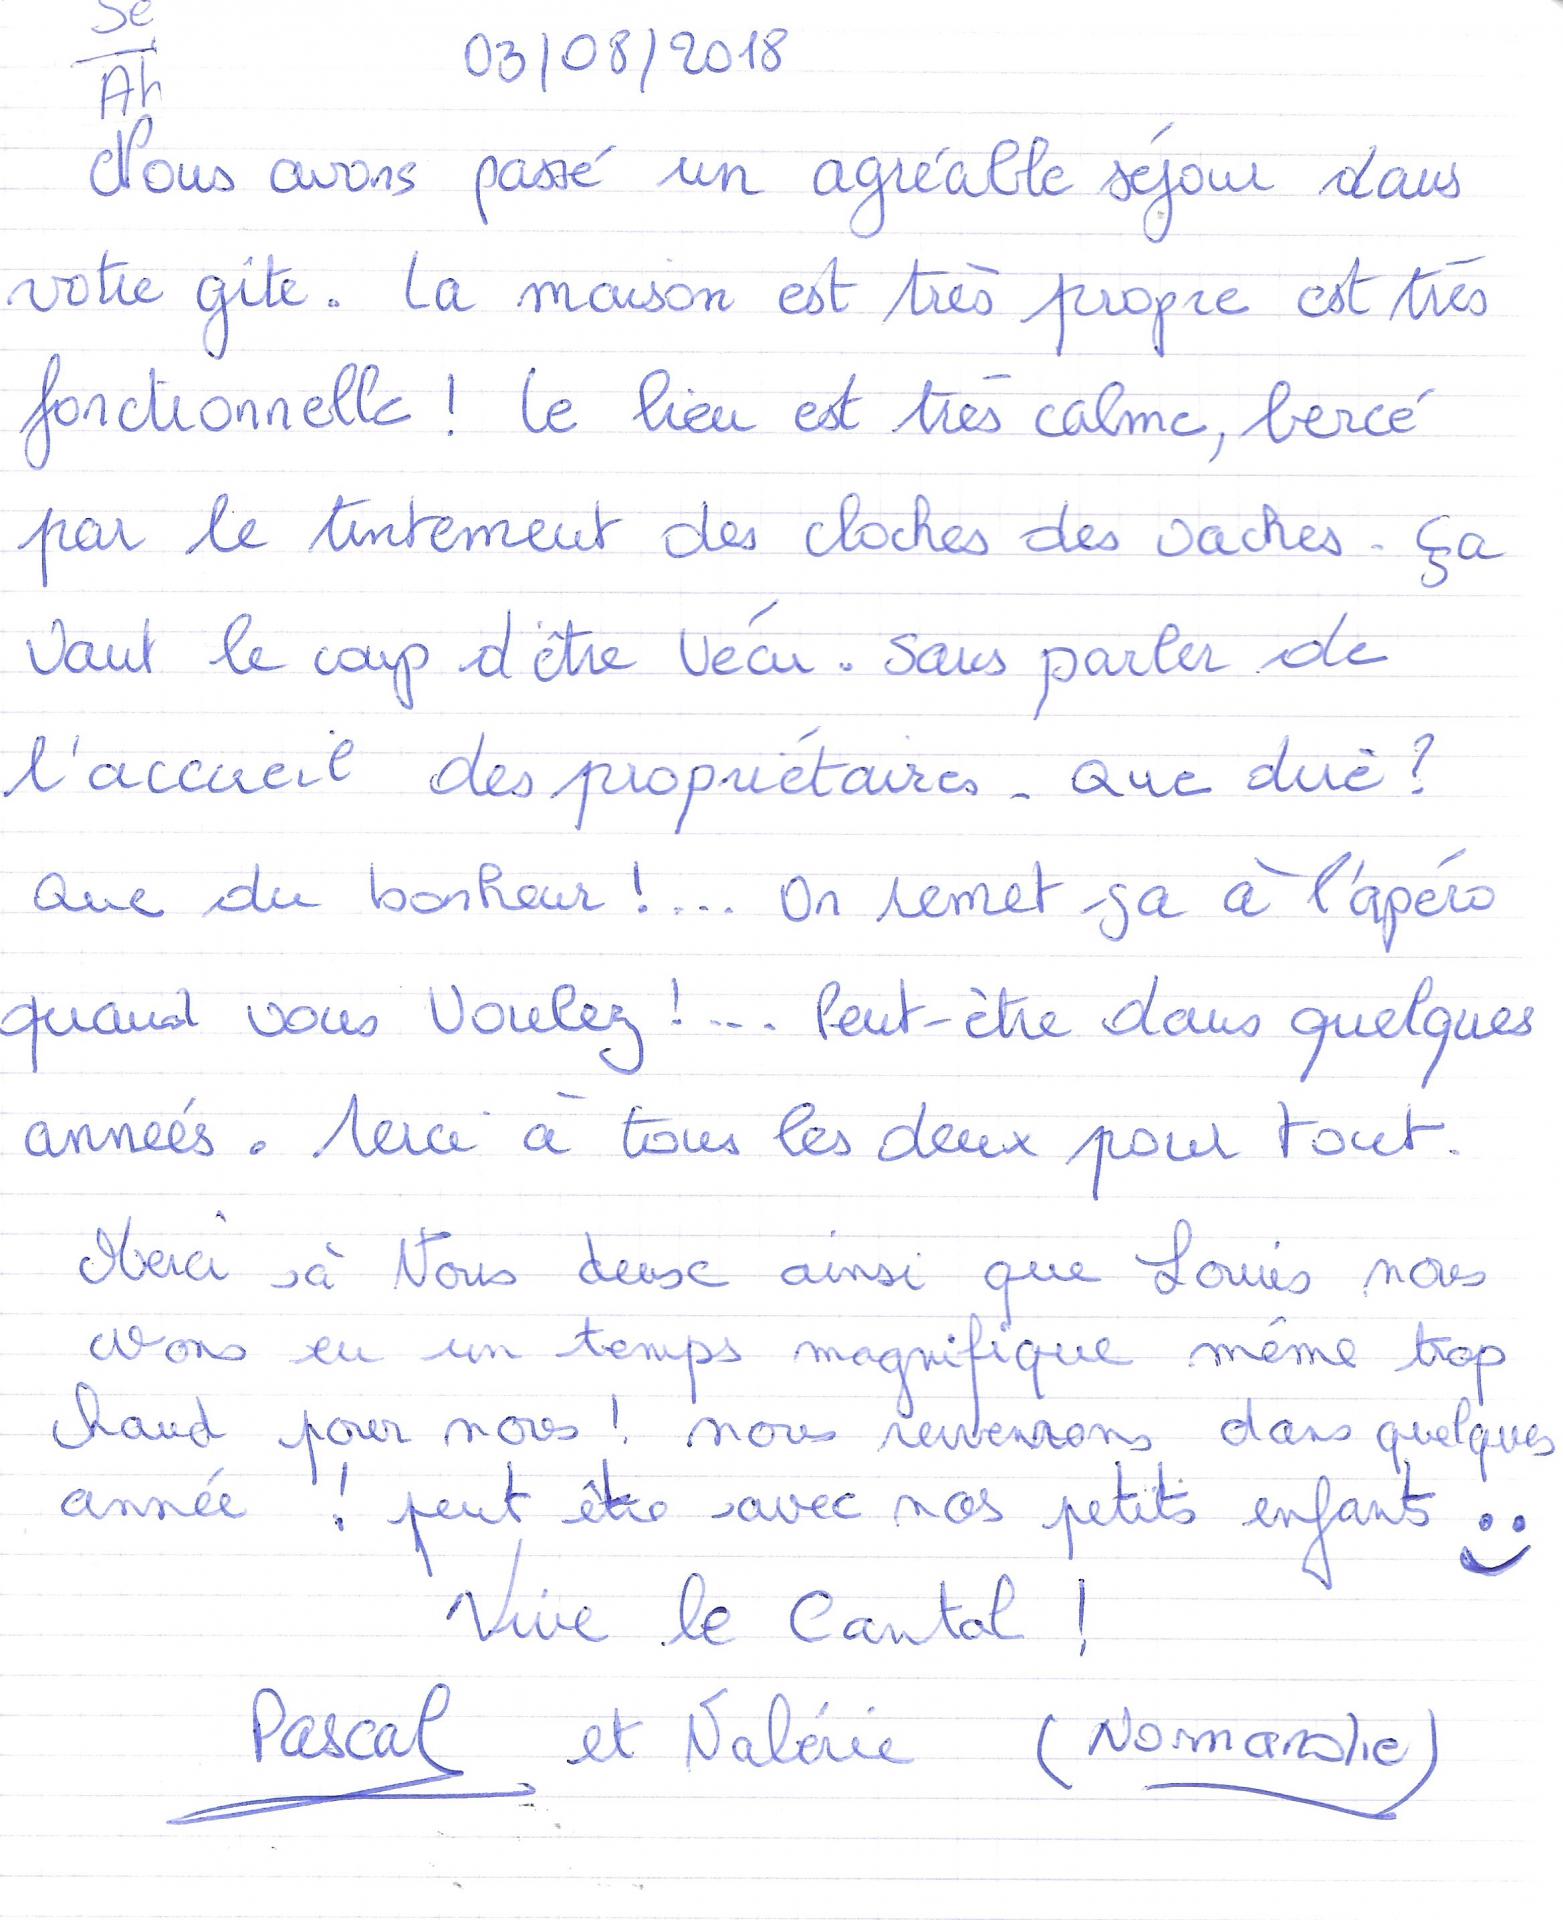 03/08/2018
Nous avons passé un agréable séjour dans
votre gîte. La maison est très propre est très
fonctionnelle ! Le lieu est très calme, bercé
par le tintement des cloches des vaches. Ça
vaut le coup d'être vécu. Sans parler de
l'accueil des propriétaires. Que dire ?
Que du bonheur !... On remet ça à l'apéro
quand vous voulez !... Peut-être dans quelques
années. Merci à tous les deux pour tout.
Merci à Vous deux ainsi que Louis nous
avons eu un temps magnifique même trop
chaud pour nous ! nous reviendrons dans quelques
année ! peut être avec nos petits enfants
Vive le Cantal !
Pascal et Valérie (Normandie)